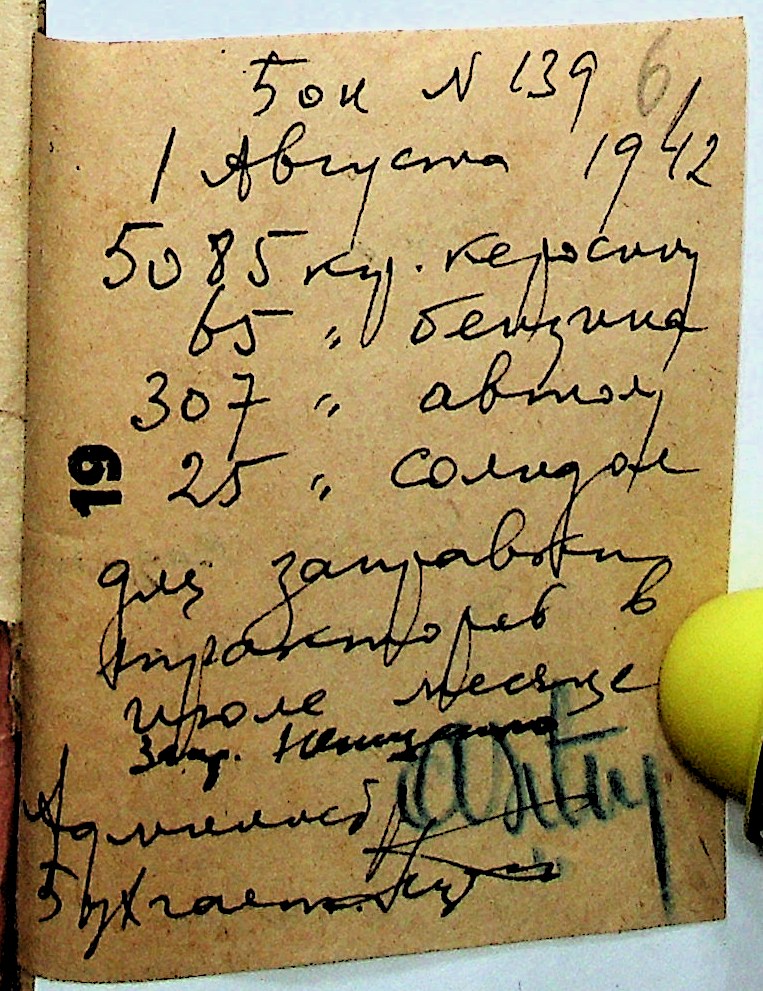 Бон N 139 6
1 Августа 1942
5085 кгр. керосину
65 " бензина
307 " автолу
25 " солидол
19
для заправки
тракторов в
июле месяце
Администр
Бухгалт.